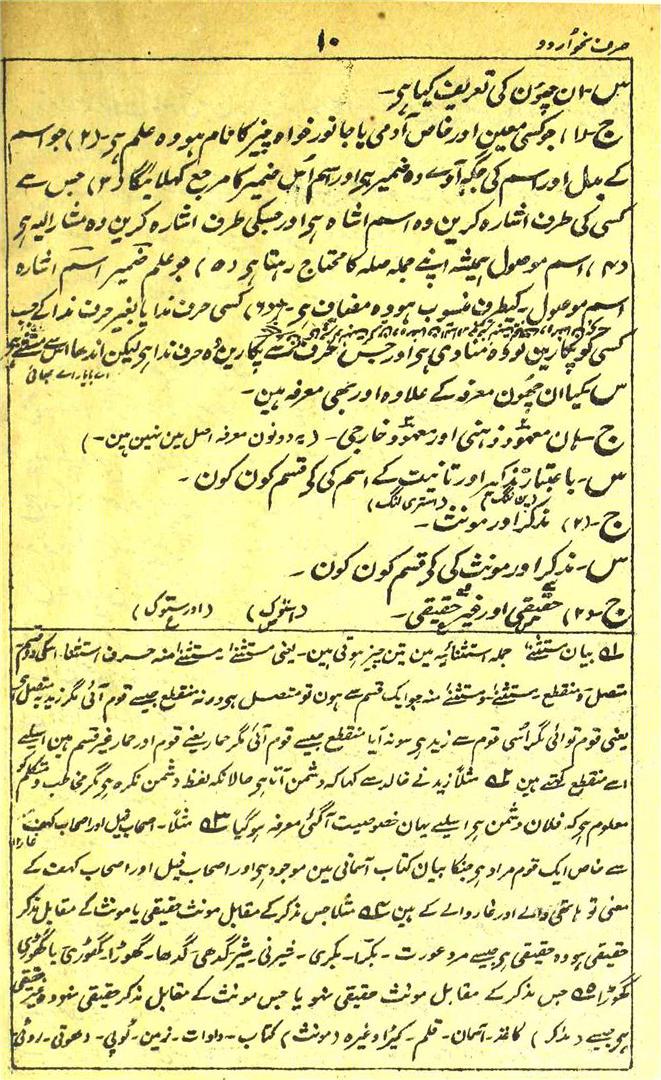 صرف نحو اردو
۱۰
س۔ ان چھون کی تعریف کیا ہی۔
ج۔ (۱) جو کسی معین اور خاص آدمی یا جانور خواہ چیز کا نام ہو وہ علم ہی۔ (۲) جو اسم
کے بدل اور اسم کی جگہ آوے وہ ضمیر ہی اور اسم اُس ضمیر کا مرجع کہلائیگا (۳) جس سے
کسی کی طرف اشارہ کرین وہ اسم اشارہ ہی اور جسکی طرف اشارہ کرین وہ مشار الیہ ہی
(۴) اسم موصول ہمیشہ اپنے جملہ صلہ کا محتاج رہتا ہی (۵) جو علم ضمیر اسم اشارہ
اسم موصول۔ کیطرف منسوب ہو وہ مضاف ہی۔ (۶) کسی حرف ندا یا بغیر حرف ندا کے جب
کسی کو پکارین تو وہ منادی ہی اور جس حرف سے پکارین وہ حرف ندا ہی لیکن
اے بابا۔ اے بھائی
س۔ کیا ان چھون معرفہ کے علاوہ اور بھی معرفہ ہین۔
ج۔ ہان معہود ذہنی اور معہود خارجی۔ (یہ دونون معرفہ اصل مین نہین ہین۔)
س۔ باعتبار تذکیر اور تانیث کے اسم کی کَی قسم کون کون۔
(استری لنگ)
ج۔ (۲) مذکر اور مونث۔
س۔ مذکر اور مونث کی کَی قسم کون کون۔
ج۔ (۲) حقیقی اور غیر حقیقی۔
۱ بیان مستثنےٰ جملہ استثنائیہ مین تین چیز ہوتی ہین۔ یعنی مستثنےٰ مستثنےٰ منہ حرف استثنا۔ اسکی دو قسم
متصل و منقطع مستثنےٰ و مستثنےٰ منہ جو ایک قسم سے ہون تو متصل ہی ورنہ منقطع جیسے قوم آئی مگر زید یہ متصل ہی
یعنی قوم تو آئی مگر اُسی قوم سے زید ہی سو نہ آیا منقطع جیسے قوم آئی مگر حمار یعنے قوم اور حمار غیر قسم ہین اسلیے
اسے منقطع کہتے ہین ۲ مثلاً زید نے خالد سے کہا کہ دشمن آتا ہی حالانکہ لفظ دشمن نکرہ ہی مگر مخاطب و متکلم کو
معلوم ہی کہ فلان دشمن ہی اسلیے یہان خصوصیت آگئی معرفہ ہو گیا ۳ مثلاً۔ اصحاب فیل اور اصحاب کہف
سے خاص ایک قوم مراد ہی جنکا بیان کتاب آسمانی مین موجود ہی اور اصحاب فیل اور اصحاب کہف کے
معنی تو ہاتھی والے اور غار والے کے ہین ۴ مثلاً جس مذکر کے مقابل مونث حقیقی یا مونث کے مقابل مذکر
حقیقی ہو وہ حقیقی ہی جیسے مرد عورت۔ بکرا۔ بکری۔ شیر۔ گدھی۔ گدھا۔ گھوڑا۔ گھوڑی یا گھوڑی
گھوڑا ۵ جس مذکر کے مقابل مونث حقیقی نہو یا جس مونث کے مقابل مذکر حقیقی نہو وہ غیر حقیقی
ہی جیسے (مذکر) کاغذ۔ آسمان۔ قلم۔ کپڑا وغیرہ (مونث) کتاب۔ دوات۔ زمین۔ ٹوپی۔ دھوتی۔ روٹی